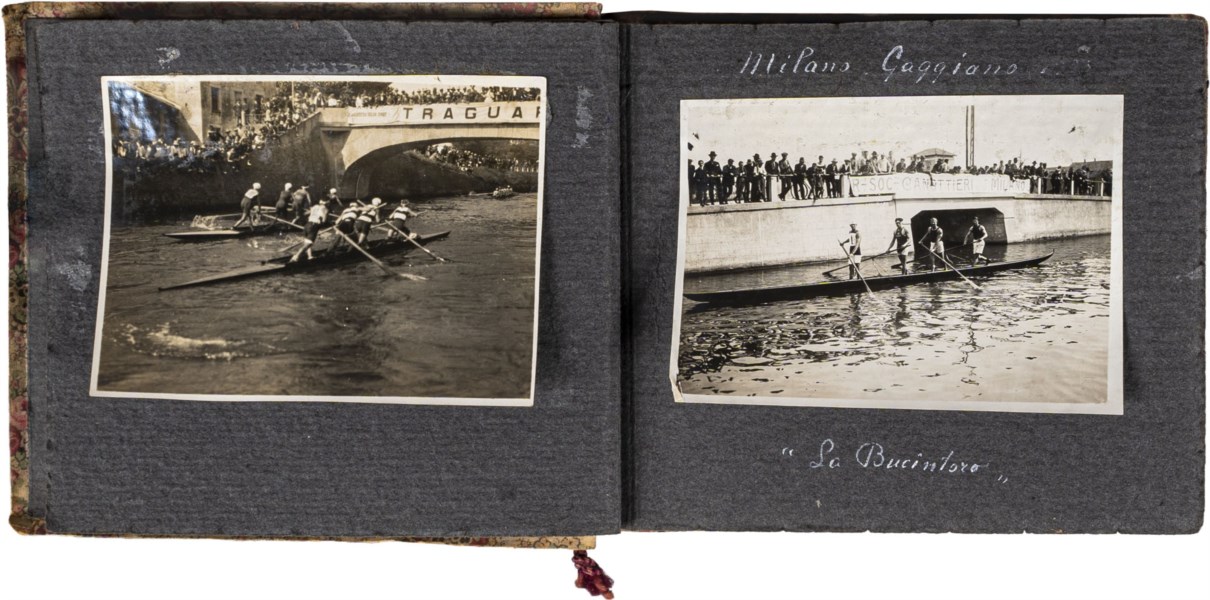 TRAGUAR
Milano Gaggiano
R-SOC-CANOTTIERI MILANO
"La Bucintoro„